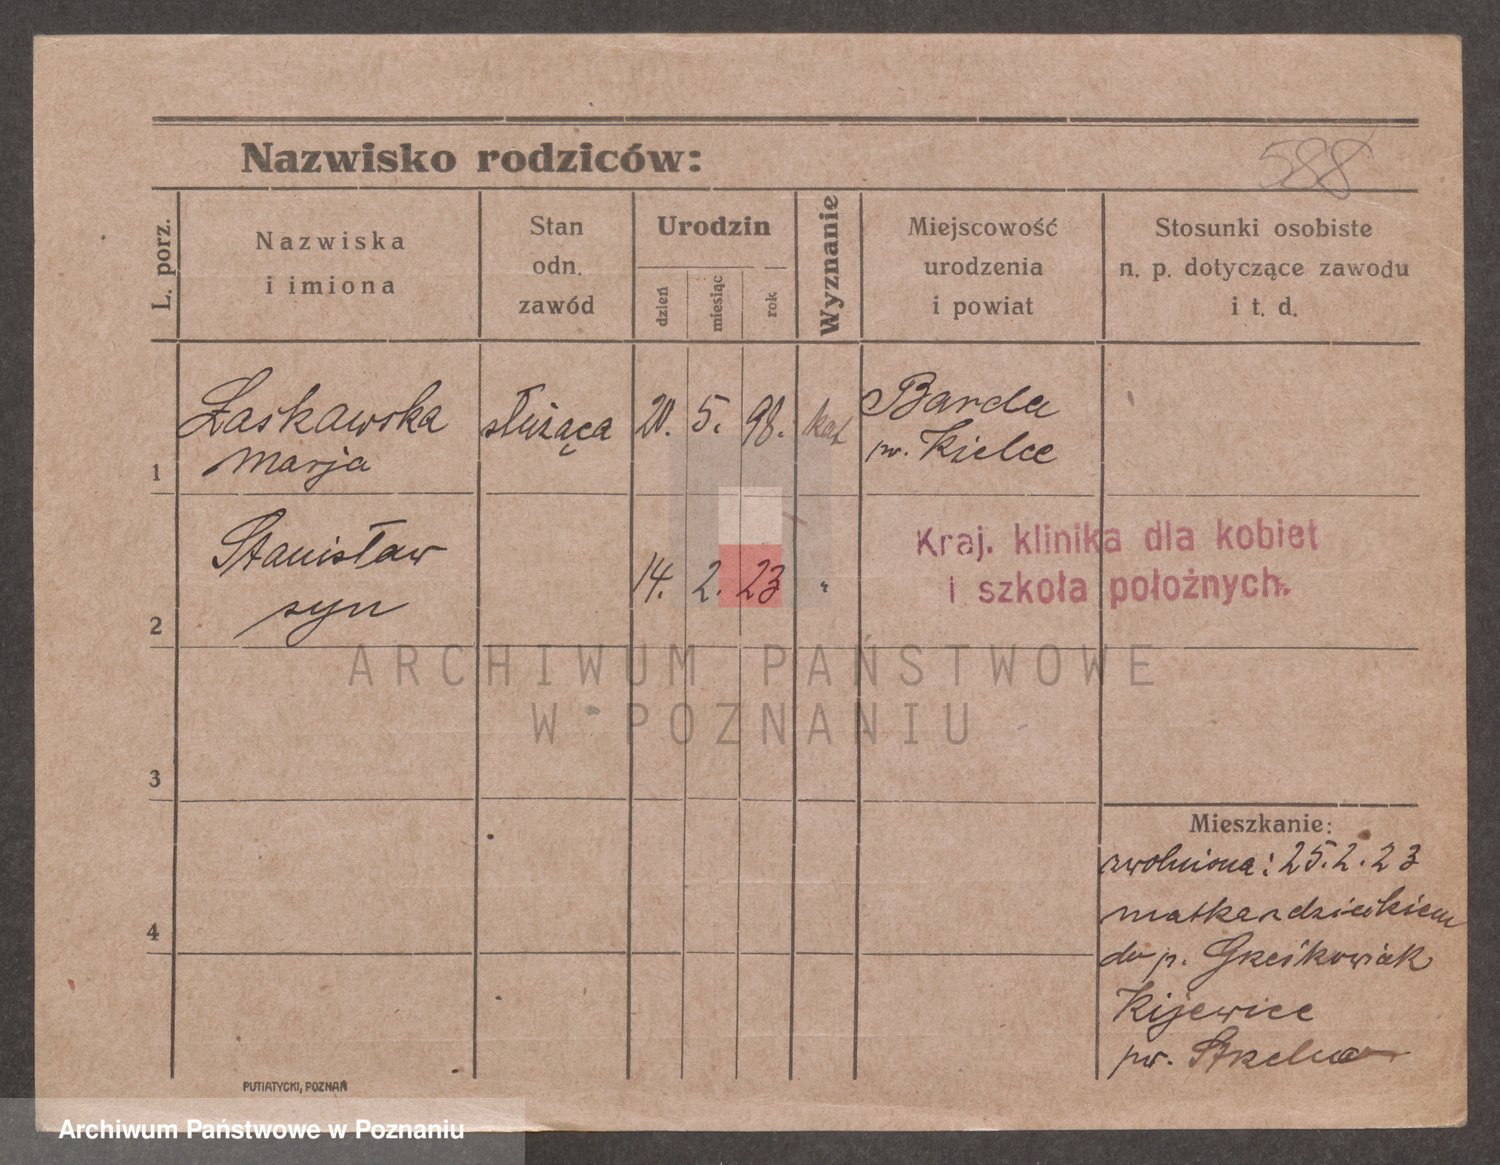 Nazwisko rodziców:
588
L. porz.
Nazwiska
i imiona
Stan
odn.
zawód
Urodzin
dzień
miesiąc
rok
Wyznanie
Miejscowość
urodzenia
i powiat
Stosunki osobiste
n. p. dotyczące zawodu
i t. d.
1
Łaskawska
Marja
służąca
20. 5. 98.
kat
Barda
pw. Kielce
2
Stanisław
syn
14. 2. 23
"
Kraj. klinika dla kobiet
i szkoła położnych.
ARCHIWUM PAŃSTWOWE
W POZNANIU
3
4
Mieszkanie:
zwolniona: 25.2.23
matka z dzieckiem
do p. Grześkowiak
Kijewice
pw. Strzelno
PUTIATYCKI, POZNAŃ
Archiwum Państwowe w Poznaniu